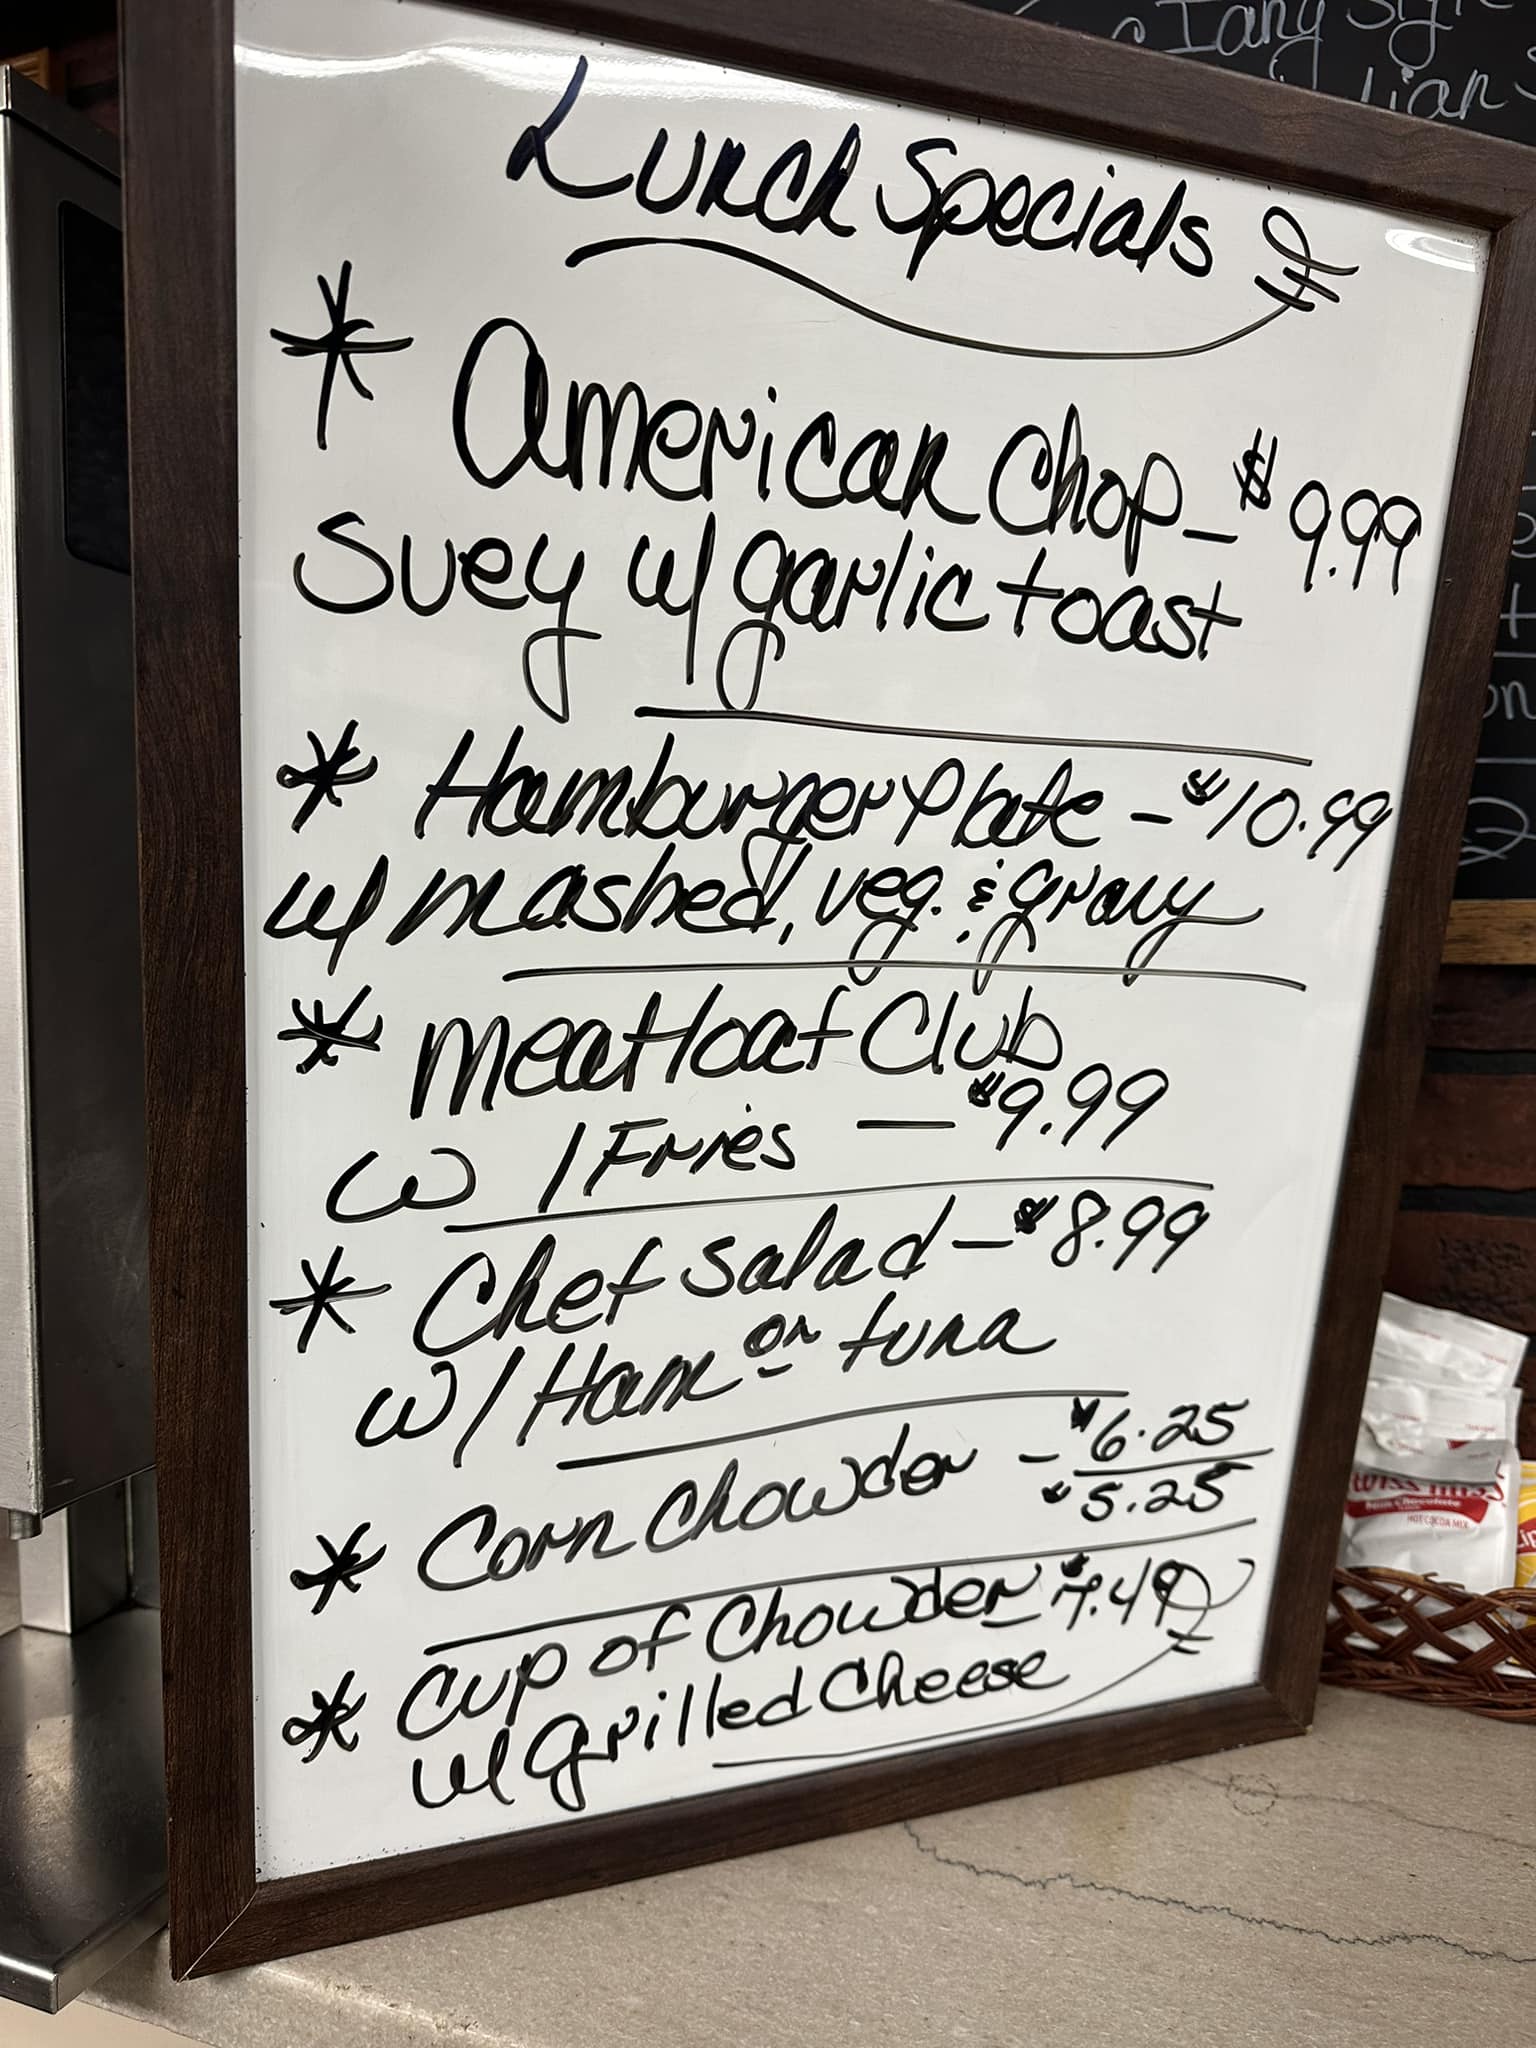 Lunch Specials
* American Chop - $9.99
Suey w/ garlic toast
* Hamburger Plate - $10.99
w/ mashed, veg. & gravy
* Meatloaf Club
w/Fries — $9.99
* Chef Salad - $8.99
w/Ham or tuna
* Corn Chowder - $6.25
$5.25
* Cup of Chowder $7.49
w/ Grilled Cheese
Tangy
Milk Chocolate
HOT COCOA MIX